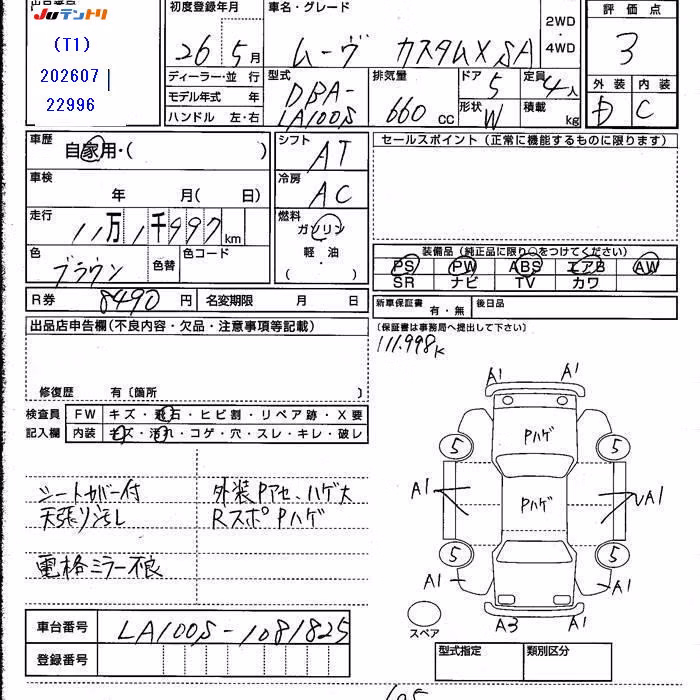 出品番号
JUテントリ
(T1)
202607
22996
初度登録年月
26年5月
車名・グレード
ムーヴ カスタムX SA
2WD
・
4WD
評価点
3
外装 内装
D C
ディーラー・並行
モデル年式 年
ハンドル 左・右
型式
DBA-
LA100S
排気量
660cc
ドア
5
形状
W
定員
4人
積載
kg
車歴
自家用・( )
車検
年 月(日)
走行
11万1千997km
色
ブラウン
色替
色コード
シフト
AT
冷房
AC
燃料
ガソリン
軽・油
( ・ )
セールスポイント(正常に機能するものに限ります)
装備品(純正品に限り○をつけてください)
PS PW ABS エアB AW
SR ナビ TV カワ
R券 8490円 名変期限 月 日
新車保証書 有・無 後日品
(保証書は事務局へ提出して下さい)
111.998K
出品店申告欄(不良内容・欠品・注意事項等記載)
修復歴 有〔箇所 〕
検査員 FW キズ・飛石・ヒビ割・リペア跡・X要
記入欄 内装 キズ・汚れ・コゲ・穴・スレ・キレ・破レ
シートカバー付
天張リ汚レ
電格ミラー不良
外装Pアセ、ハゲ大
RスポPハゲ
A1 A1
5 Pハゲ 5
A1 Pハゲ A1
5 5
A1 A1
A3 A1
スペア
車台番号 LA100S-1081825
登録番号
型式指定 類別区分